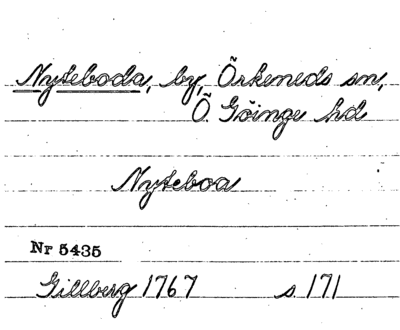 Nyteboda, by, Örkeneds sn,
Ö Göinge hd
Nyteboa
Nr 5435
Gillberg 1767 s 171